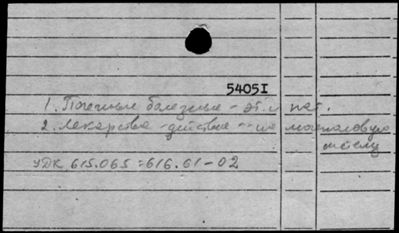 54051
1. Почечные болезни - эт. и пат.
2. Лекарства - действие -- на мочеполовую
систему
УДК 615.065:616.61-02